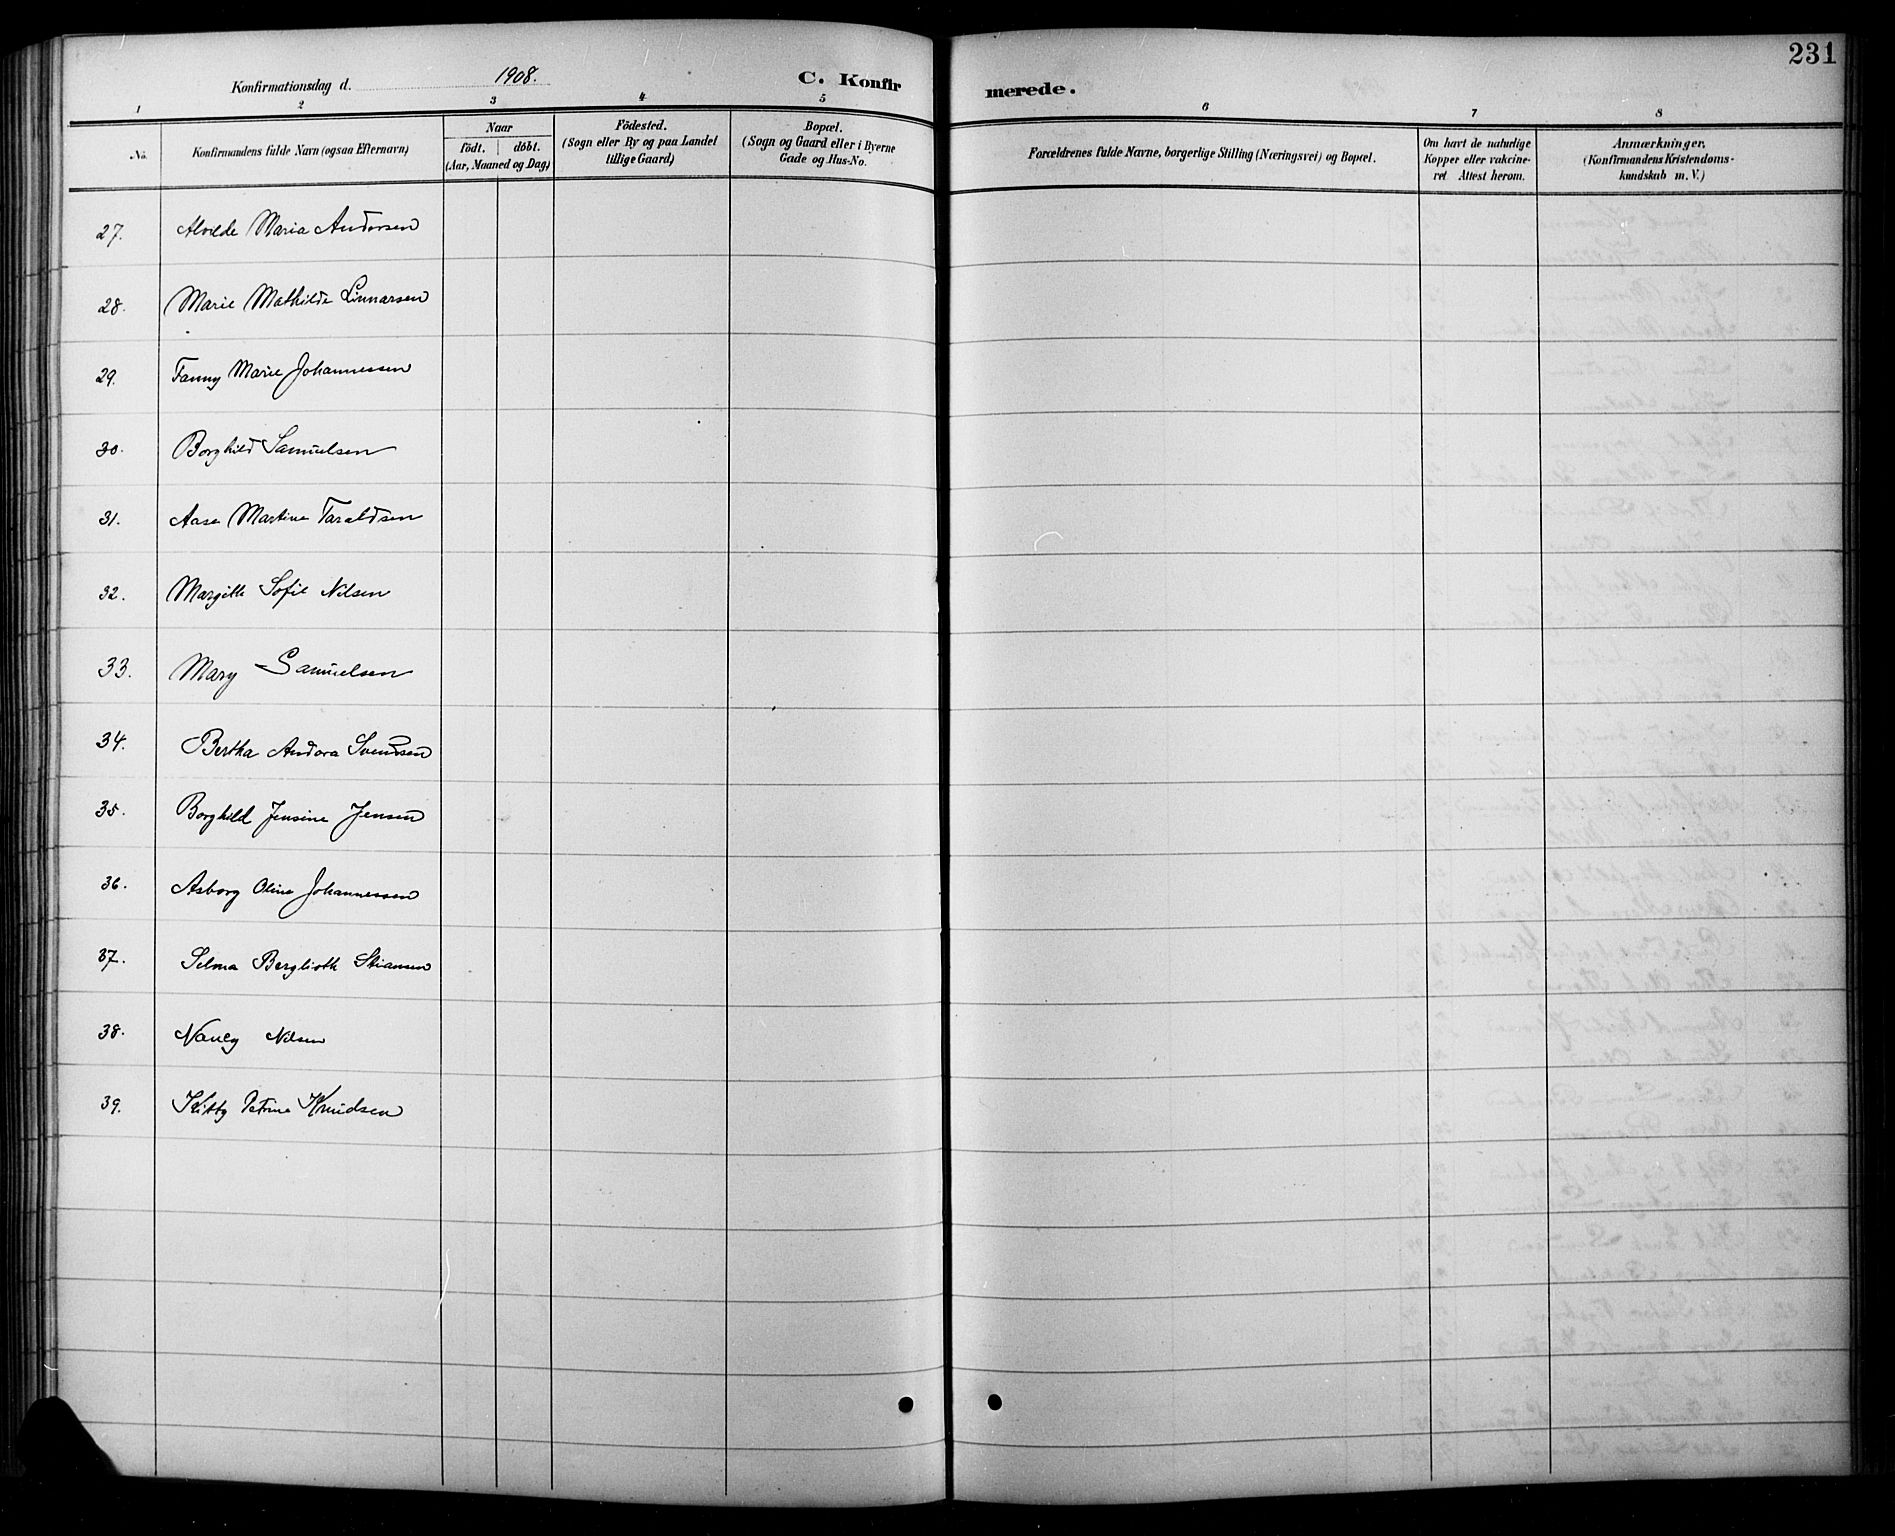 231
Konfirmationsdag d. 1908.
C. Konfirmerede.
1 2 3 4 5 6 7 8
No.
Konfirmandens fulde Navn (ogsaa Efternavn)
Naar
födt. döbt.
(Aar, Maaned og Dag)
Födested.
(Sogn eller By og paa Landet
tillige Gaard)
Bopæl.
(Sogn og Gaard eller i Byerne
Gade og Hus-No.)
Forældrenes fulde Navne, borgerlige Stilling (Næringsvei) og Bopæl.
Om havt de naturlige
Kopper eller vakcine-
ret Attest herom.
Anmærkninger,
(Konfirmandens Kristendoms-
kundskab m. V.)
27. Alvilde Maria Andersen
28. Marie Mathilde Linnarsen
29. Fanny Marie Johannessen
30. Borghild Samuelsen
31. Aase Martine Taraldsen
32. Margith Sofie Nilsen
33. Mary Samuelsen
34. Bertha Andora Svendsen
35. Borghild Jensine Jensen
36. Asborg Oline Johannessen
37. Selma Berglioth Stiansen
38. Nancy Nilsen
39. Kitty Petrine Knudsen